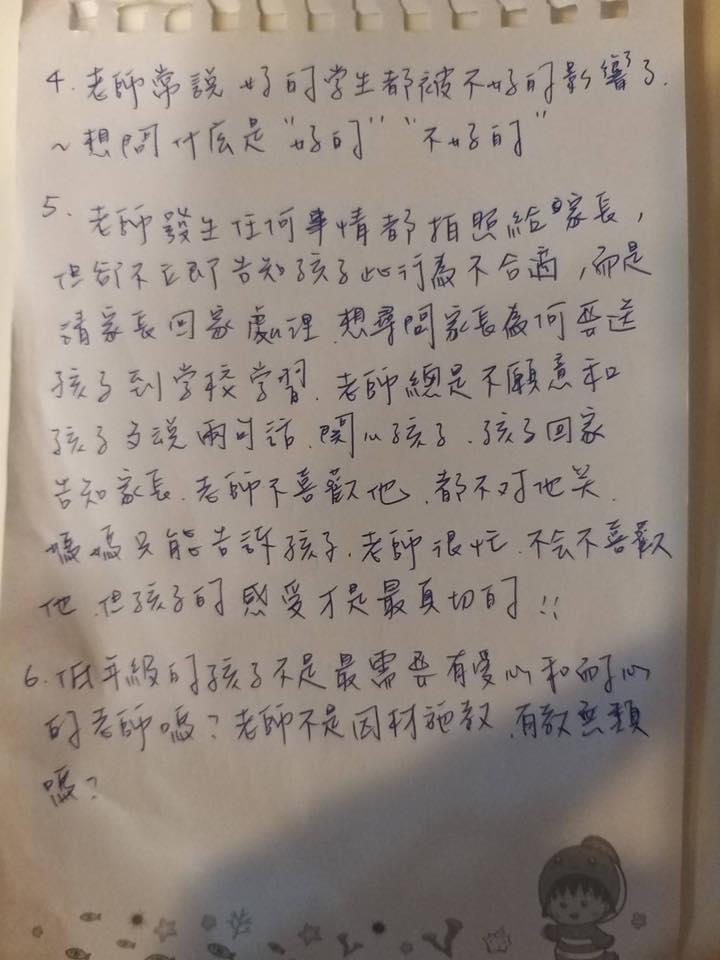 4. 老師常說好的学生都被不好的影響了.
~想問什么是"好的""不好的"
5. 老師發生任何事情都拍照給家長,
但卻不立即告知孩子此行為不合適,而是
請家長回家處理.想尋問家長為何要送
孩子到学校学習.老師總是不願意和
孩子多說兩句話.関心孩子.孩子回家
告知家長.老師不喜歡他.都不对他笑.
媽媽只能告訴孩子.老師很忙.不会不喜歡
他.但孩子的感受才是最真切的!!
6. 低年級的孩子不是最需要有愛心和耐心
的老師嗎?老師不是因材施教.有教無類
嗎?